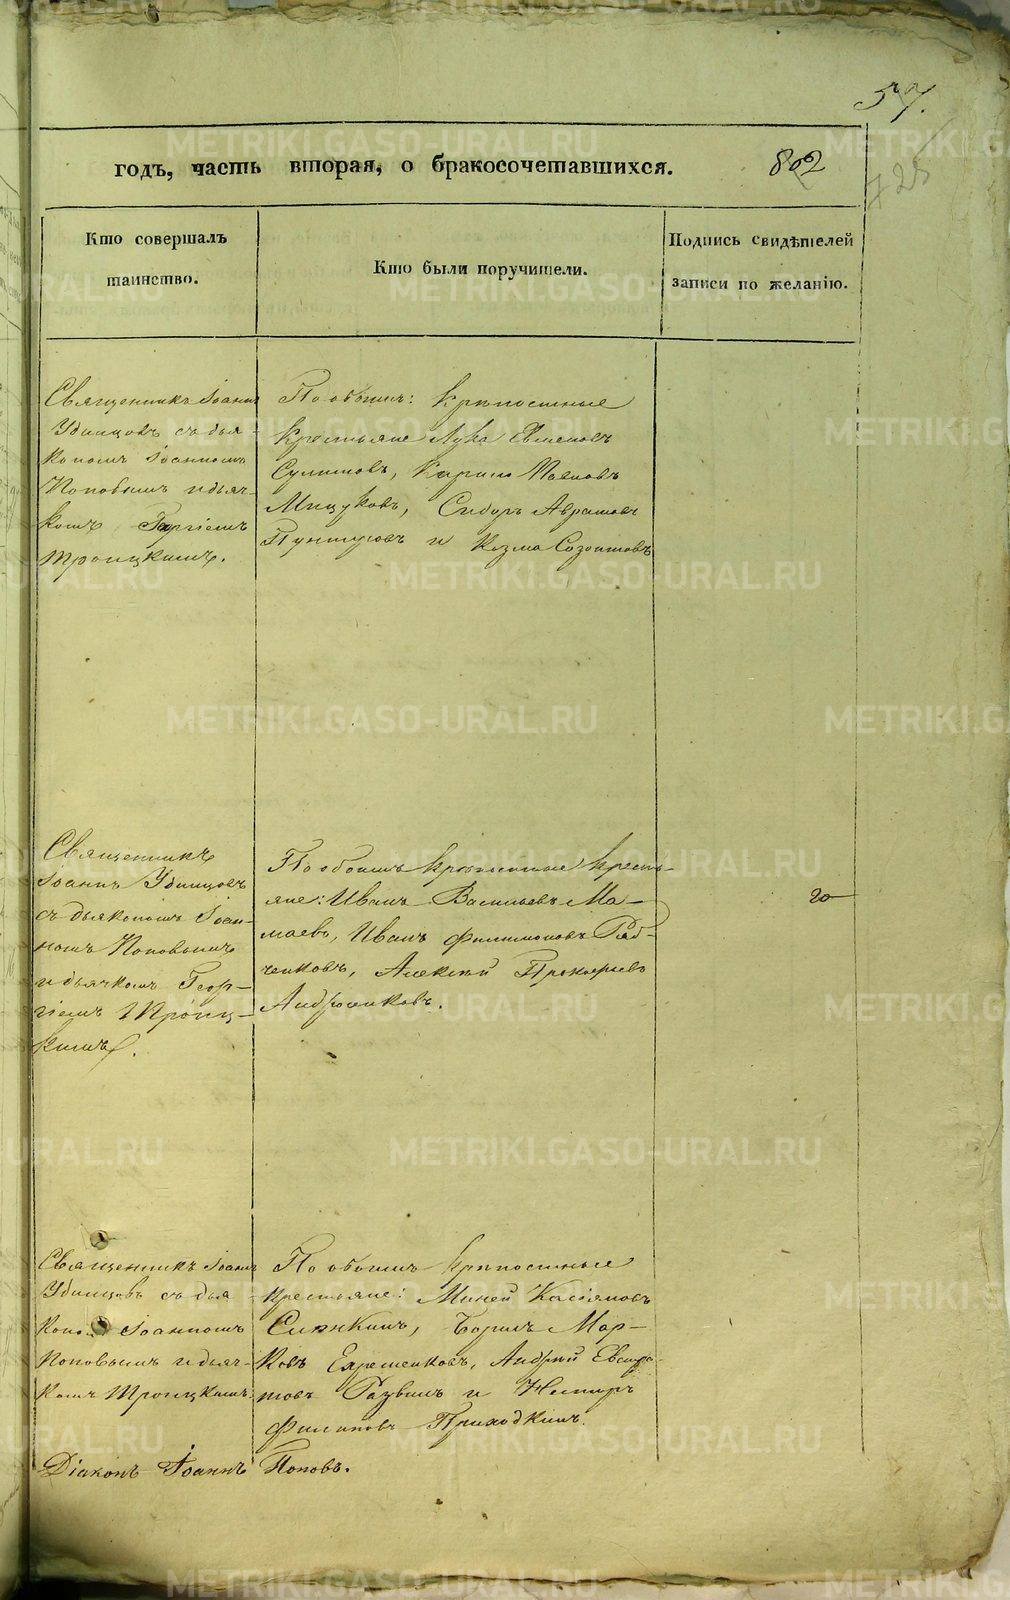 57.
годъ, часть вторая, о бракосочетавшихся.
802
725
Кто совершалъ
таинство.
Кто были поручители.
Подпись свидѣтелей
записи по желанію.
Священникъ Іоаннъ
Удинцовъ съ дья-
кономъ Іоанномъ
Поповымъ и дьяч-
комъ Георгіемъ
Троицкимъ.
По обоимъ: крѣпостные
крестьяне Лука
Сулимовъ, Кирило Павловъ
Мицуковъ, Сидоръ Аврамовъ
и Козма Созонтовъ
Священникъ
Іоаннъ Удинцовъ
съ дьякономъ Іоан-
номъ Поповымъ
и дьячкомъ Геор-
гіемъ Троиц-
кимъ.
По обоимъ крѣпостные кресть-
яне: Иванъ Васильевъ Ма-
маевъ, Иванъ Филимоновъ Ряб-
ченковъ, Алексѣй Прокопьевъ
Андрониковъ.
20
Священникъ Іоаннъ
Удинцовъ съ дья
кономъ Іоанномъ
Поповымъ и дьяч-
комъ Троицкимъ.
По обоимъ крѣпостные
крестьяне: Миней Касіяновъ
Борисъ Мар-
ковъ Еремѣнковъ, Андрей Евстра-
товъ и Несторъ
Филиповъ Приходкинъ.
Діаконъ Іоаннъ Поповъ.
METRIKI.GASO-URAL.RU